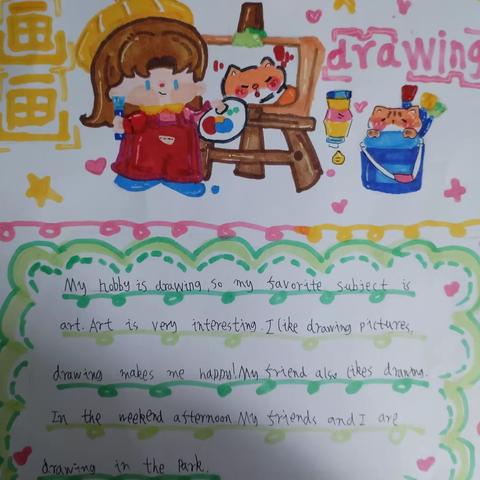 画画
drawing
My hobby is drawing, so my favorite subject is
art. Art is very interesting. I like drawing pictures,
drawing makes me happy! My friend also likes drawing.
In the weekend afternoon My friends and I are
drawing in the Park.